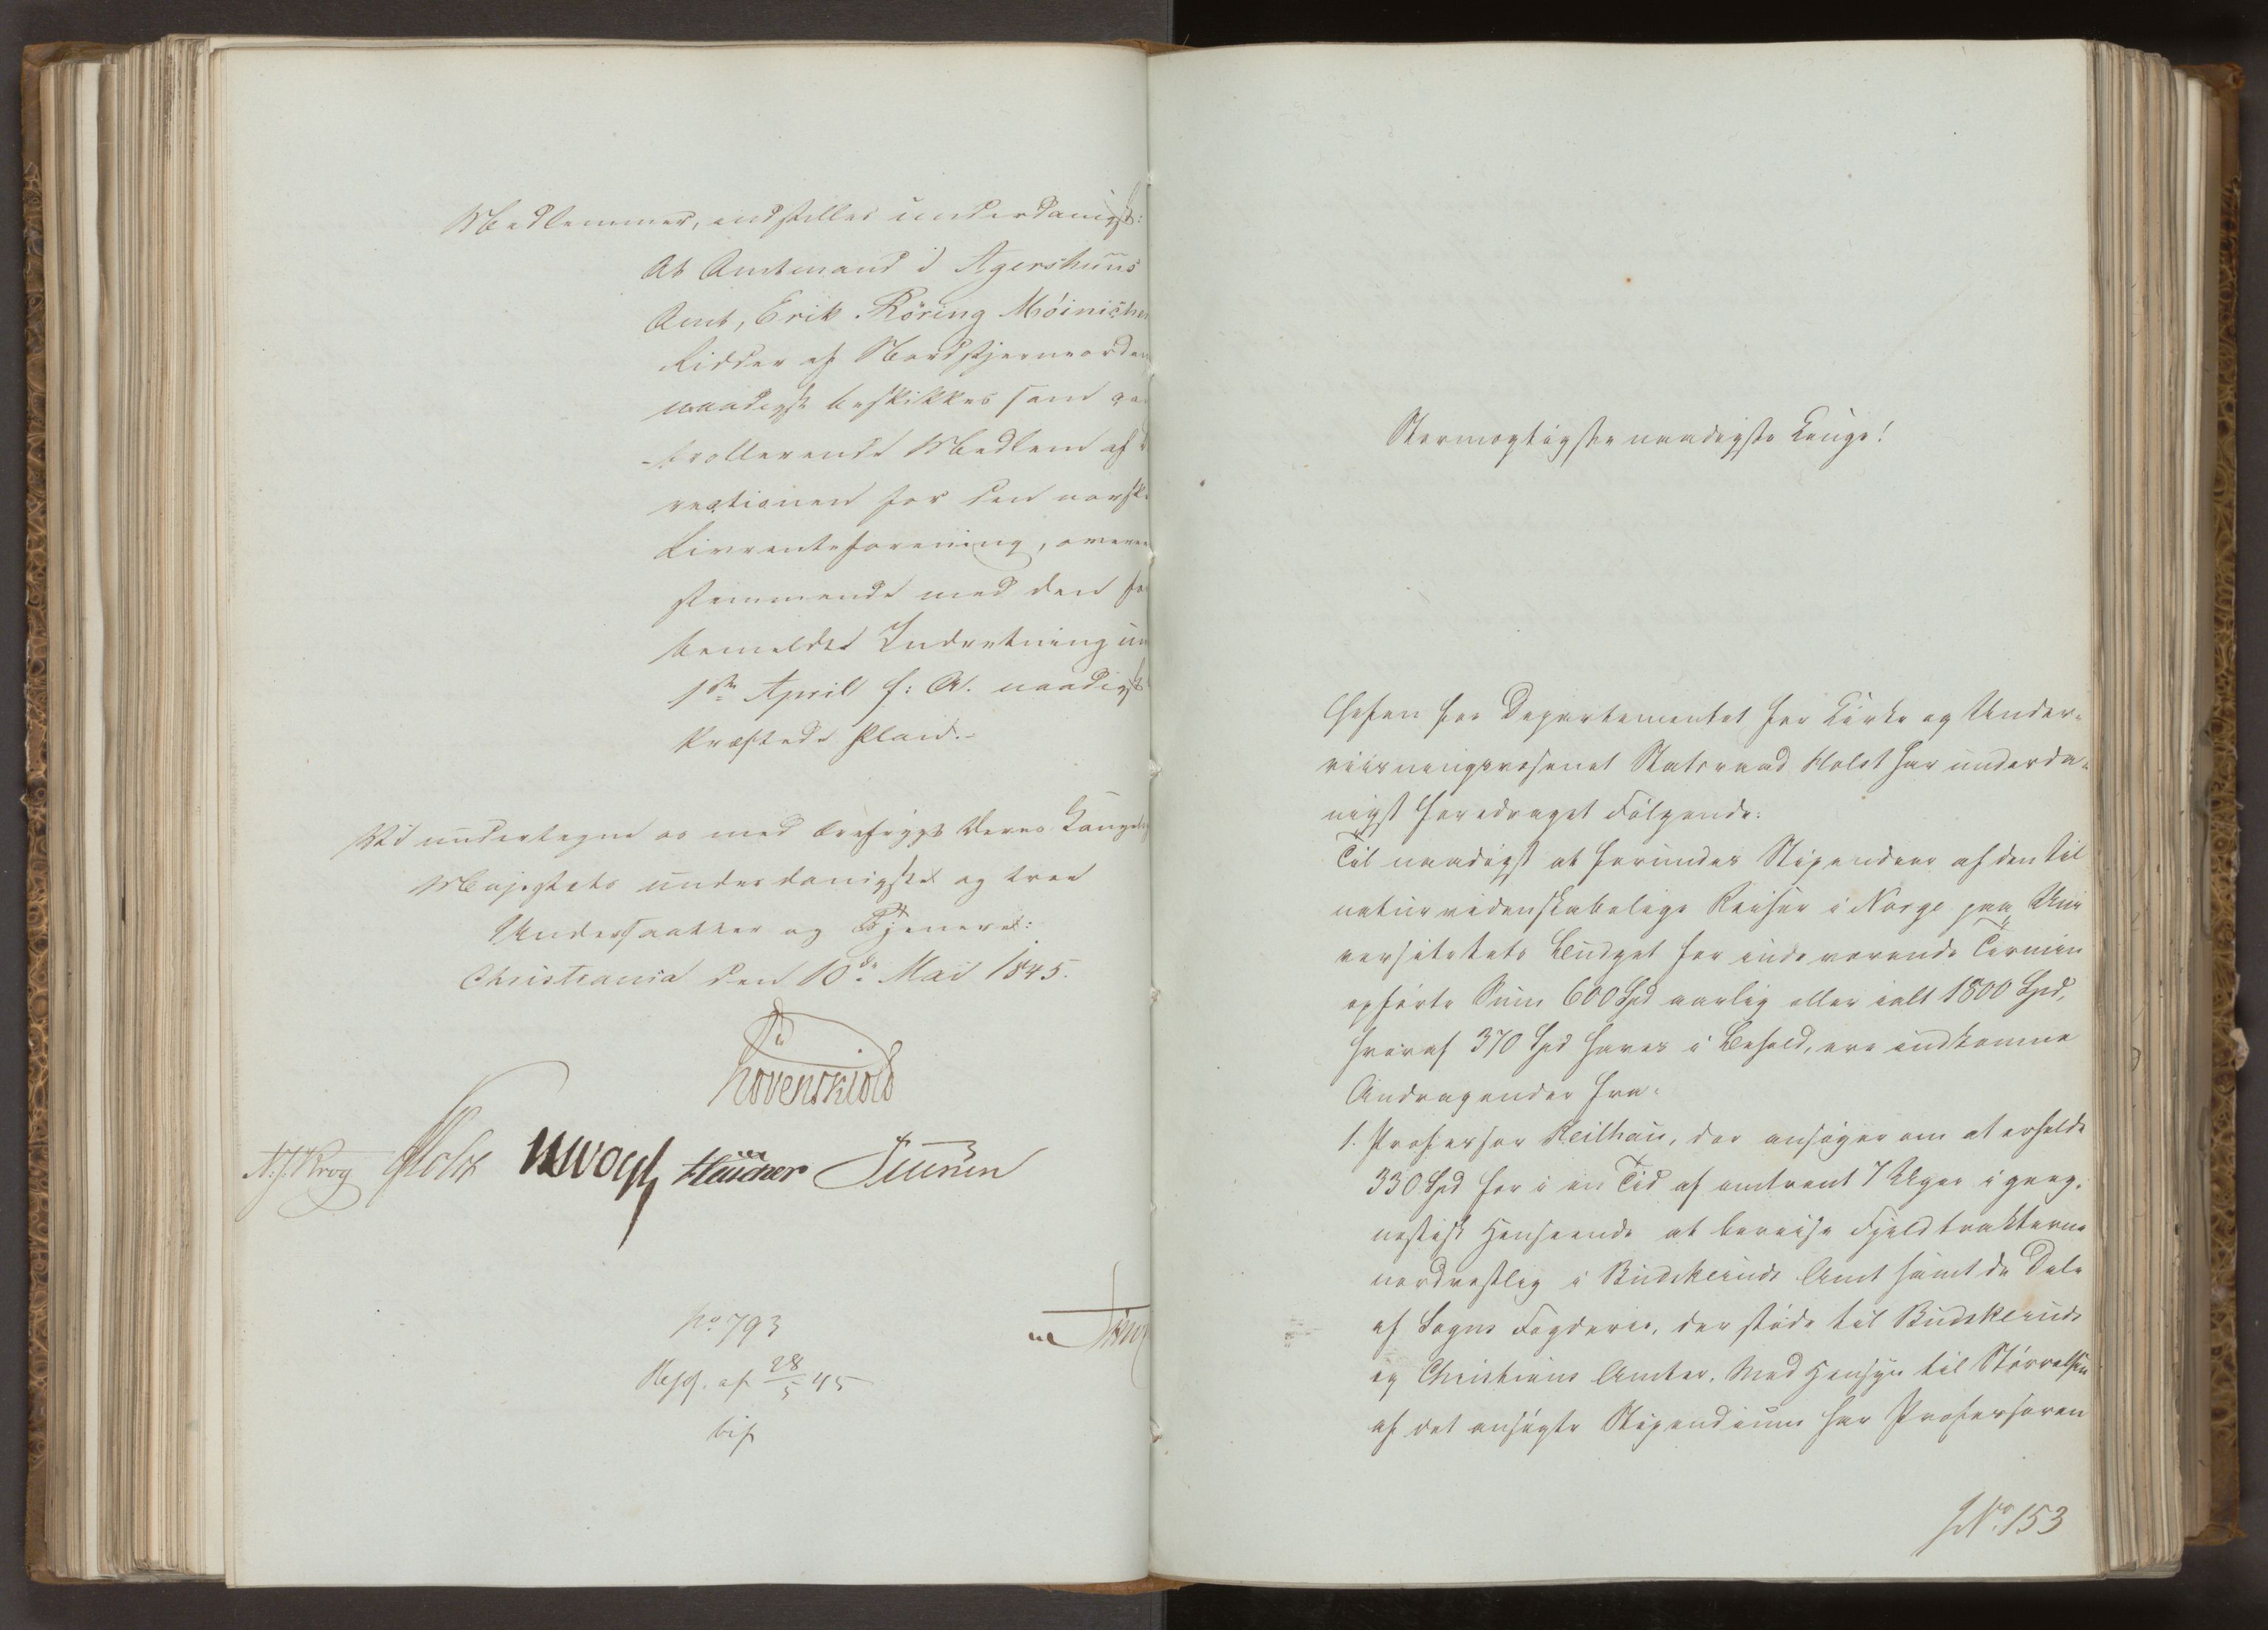 Medlemmer, indstilles underdanigst:
At Amtmand i Agershuus
Amt, Erik Röring Möinichen
Ridder af Nordstjerneorden
naadigst beskikkes som con
-trollerende Medlem af
rectionen for den norske
Livrenteforening, overeens
stemmende med den for
bemeldte Indretning un
1ste April f: A. naadigst
kræftede Plan.-
Vi undertegne os med Ærefrygt Deres Kongelige
Majestæts underdanigste og troe
Undersaatter og Tjenere:
Christiania den 10de Mai 1845.
Løvenskiold
N:J:Krog Holst Vogt
No 793
Resol. af 28/5 45
bif
Stormægtigste naadigste Konge!
Chefen for Departementet for Kirke og Under-
viisningsvæsenet Statsraad Holst har underda-
nigst foredraget Følgende:
Til naadigst at forundes Stipendier af den til
naturvidenskabelige Reiser i Norge paa Uni
versitetets Budget for indeværende Termin
opførte Sum 600 Spd aarlig eller ialt 1800 Spd,
hvoraf 370 Spd haves i Behold, ere indkomne
Andragender fra:
1. Professor Keilhau, der ansøger om at erholde
330 Spd for i en Tid af omtrent 7 Uger i geog-
nostisk Henseende at bereise Fjeldtrakterne
nordvestlig i Buskeruds Amt samt de Dele
af Sogns Fogderie, der støde til Buskeruds
og Christians Amter. Med Hensyn til Størrelsen
af det ansøgte Stipendium har Professoren
JNo. 153